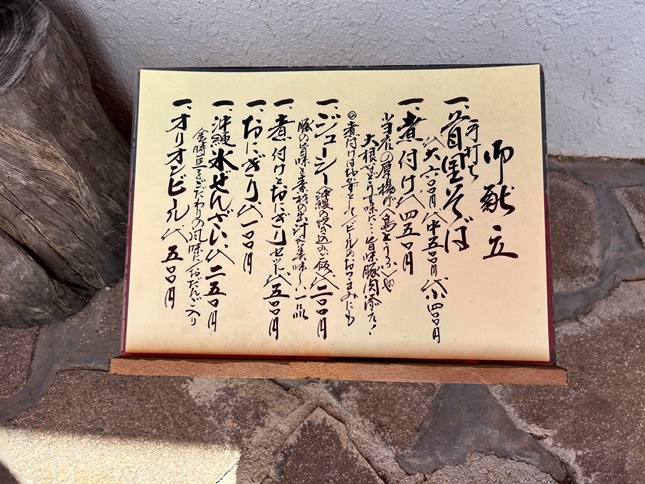 御献立
手打ち
一、首里そば
大 六〇〇円 中 五〇〇円 小 四〇〇円
一、煮付け 四五〇円
当店の厚揚げ(島とうふ)や
大根、ごぼう、昆布に… 旨味豚肉添え!
◎煮付けはお菜として、ビールのおつまみにも
一、ジューシー(沖縄の炊き込みご飯) 二〇〇円
豚の旨味と素材の出汁で美味しい一品
一、煮付けとおにぎりセット 五〇〇円
一、おにぎり 一〇〇円
一、沖縄氷ぜんざい 二五〇円
金時豆とこだわりの風味でおだんご入り
一、オリオンビール 五〇〇円